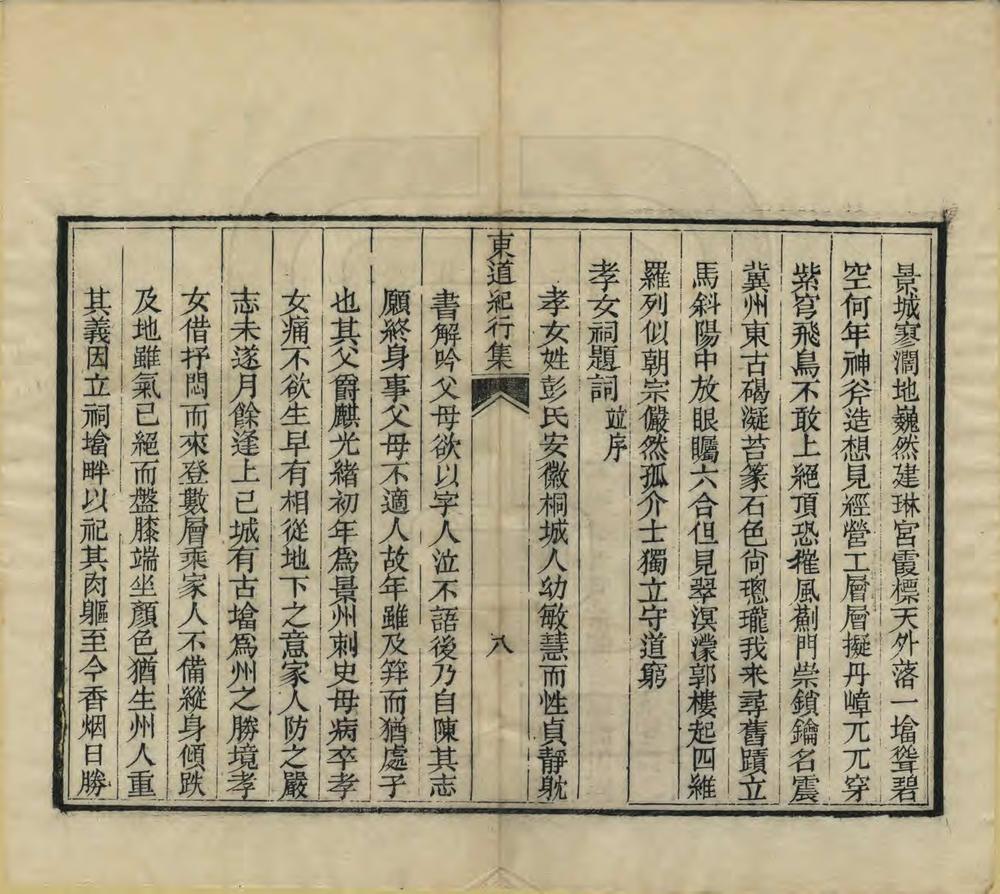 景城寥濶地巍然建琳宮霞標天外落一㙮聳碧
空何年神斧造想見經營工層層擬丹嶂兀兀穿
紫穹飛鳥不敢上絕頂恐摧風薊門崇鎖鑰名震
冀州東古碣凝苔篆石色尙璁瓏我來尋舊蹟立
馬斜陽中放眼矚六合但見翠溟濛郭樓起四維
羅列似朝宗儼然孤介士獨立守道窮
孝女祠題詞 竝序
孝女姓彭氏安徽桐城人幼敏慧而性貞靜躭
東道紀行集 八
書解吟父母欲以字人泣不語後乃自陳其志
願終身事父母不適人故年雖及笄而猶處子
也其父爵麒光緒初年爲景州刺史母病卒孝
女痛不欲生早有相從地下之意家人防之嚴
志未遂月餘逢上巳城有古㙮爲州之勝境孝
女借抒悶而來登數層乘家人不備縱身傾跌
及地雖氣已絕而盤膝端坐顏色猶生州人重
其義因立祠㙮畔以祀其肉軀至今香烟日勝